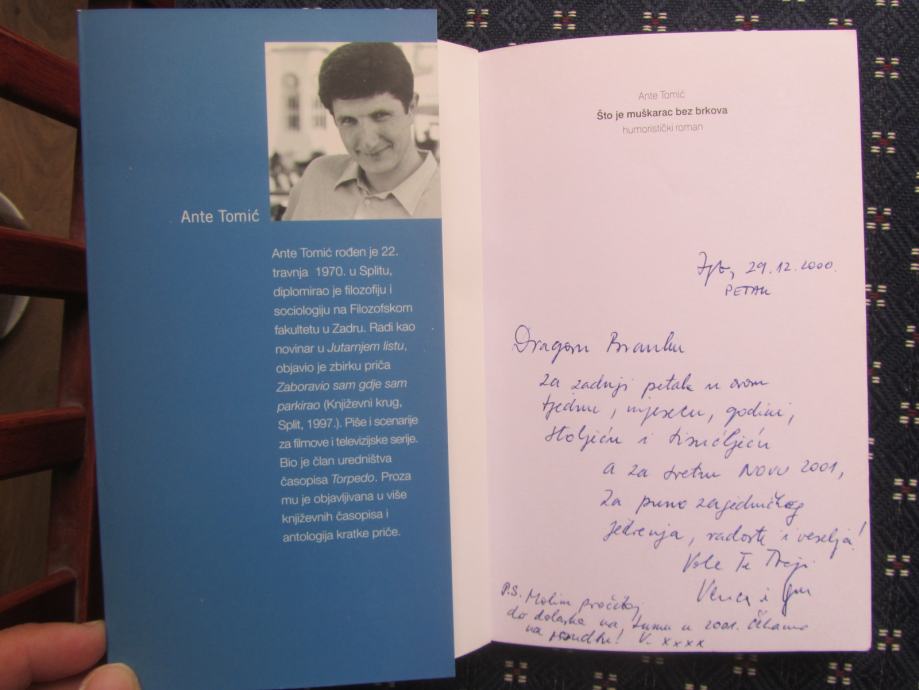 Ante Tomić
Ante Tomić rođen je 22.
travnja 1970. u Splitu,
diplomirao je filozofiju i
sociologiju na Filozofskom
fakultetu u Zadru. Radi kao
novinar u Jutarnjem listu,
objavio je zbirku priča
Zaboravio sam gdje sam
parkirao (Književni krug,
Split, 1997.). Piše i scenarije
za filmove i televizijske serije.
Bio je član uredništva
časopisa Torpedo. Proza
mu je objavljivana u više
književnih časopisa i
antologija kratke priče.
Ante Tomić
Što je muškarac bez brkova
humoristički roman
29.12.2000.
PETAK
Dragom Branku
za zadnji petak u ovom
tjednu, mjesecu, godini,
stoljeću i tisućljeću
a za sretnu NOVU 2001,
za puno zajedničkog
jedrenja, radosti i veselja!
Vole Te Tvoji
i
P.S. Molim pročitaj
do dolaska na u 2001. Čekamo
na V. xxxx